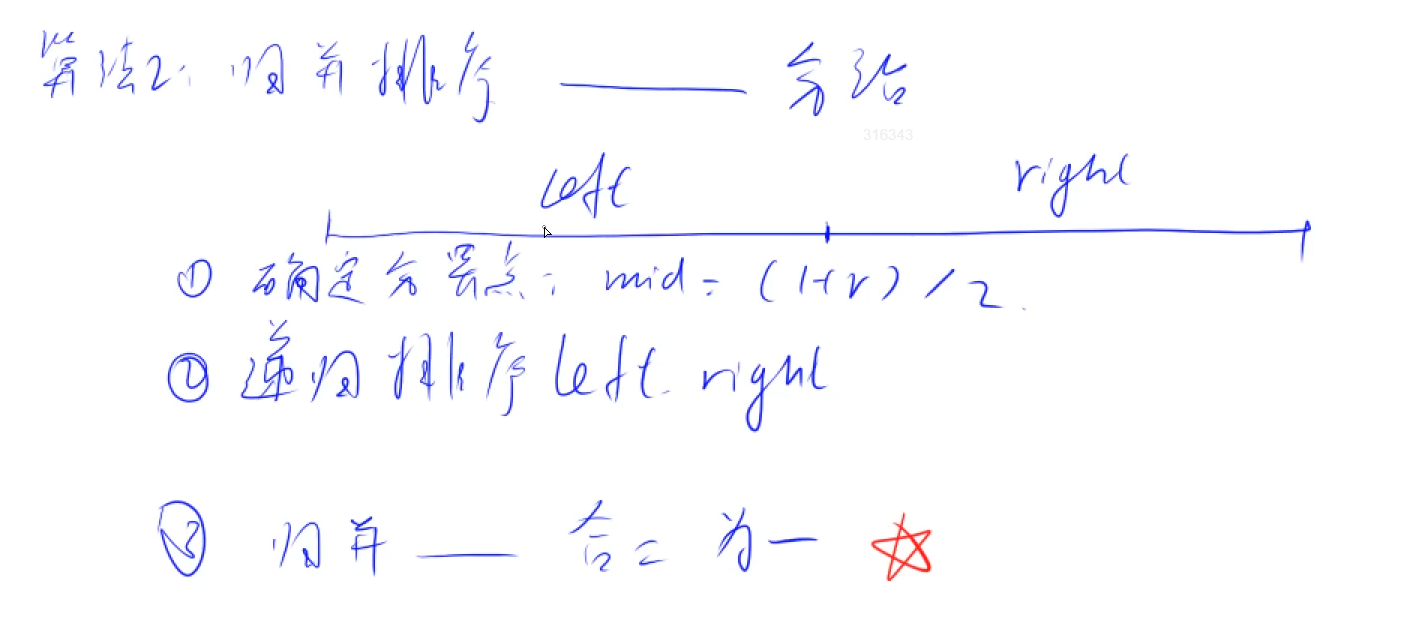 算法2: 归并排序 —— 分治
316343
left right
① 确定分界点: mid = (l+r)/2.
② 递归排序 left. right
③ 归并 —— 合二为一 ☆